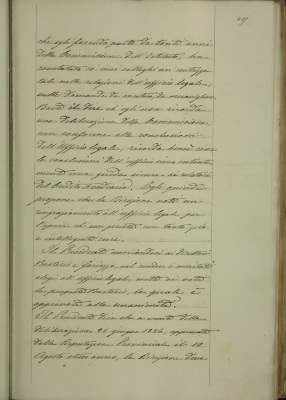 che egli facendo parte da tanti anni
della Commissione dell'Istituto, ha
constatato co' suoi colleghi un'
nelle relazioni dell'Ufficio legale,
sulle domande di mutuo, da
Basti il dire ch'egli non ricorda
una deliberazione della Commissione
non conforme alle conclusioni
dell'Ufficio legale, ricorda bensì come
le conclusioni dell'ufficio sieno
guida sicura ai relatori
del Credito fondiario. Egli quindi
propone che la Direzione voti un
ringraziamento all'ufficio legale per
l'opera che ei presta con tanto zelo
e intelligenti cure.
Il Presidente associandosi ai Direttori
e nel rendere i meritati
elogi all'ufficio legale, mette ai voti
la proposta la quale è
approvata alla unanimità.
Il Presidente dice che a mente della
deliberazione 25 giugno 1886, approvata
dalla Deputazione Provinciale il 10
Agosto stesso anno, la Direzione